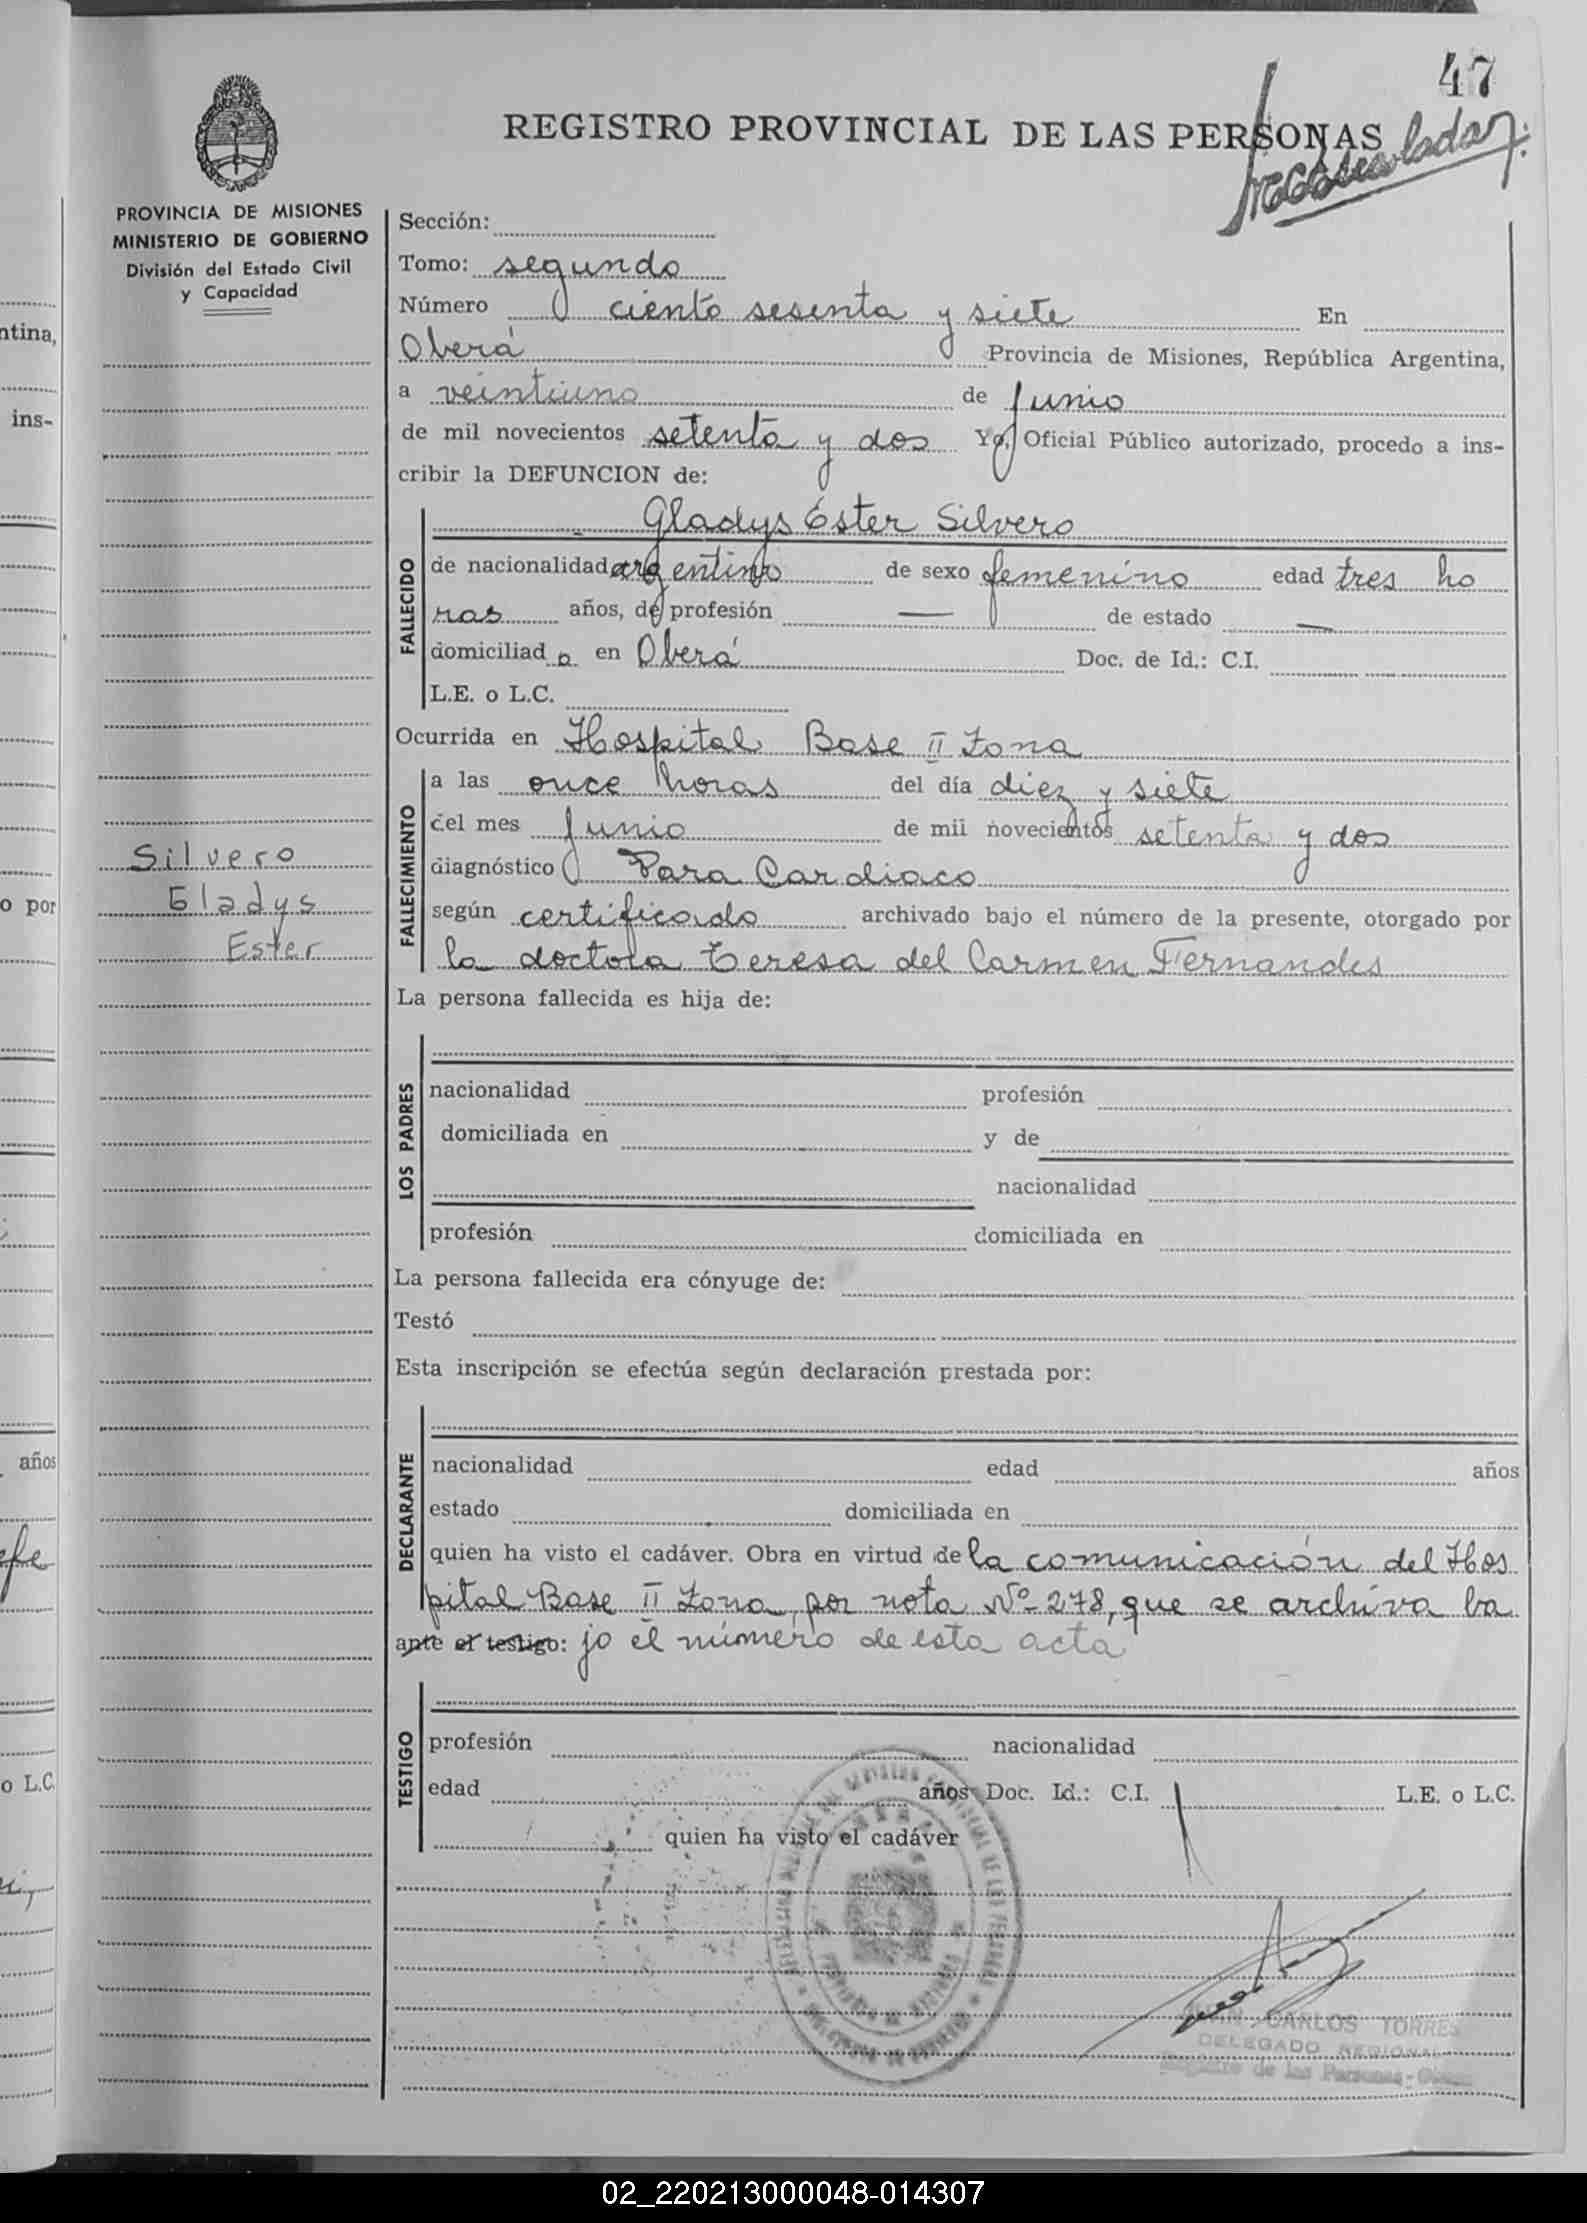 47
REGISTRO PROVINCIAL DE LAS PERSONAS
PROVINCIA DE MISIONES
MINISTERIO DE GOBIERNO
División del Estado Civil
y Capacidad
Sección:
Tomo: segundo
Número ciento sesenta y siete En
Oberá Provincia de Misiones, República Argentina,
a veintiuno de Junio
de mil novecientos setenta y dos Yo, Oficial Público autorizado, procedo a ins-
cribir la DEFUNCION de:
Gladys Ester Silvero
FALLECIDO
de nacionalidad argentina de sexo femenino edad tres ho
ras años, de profesión — de estado —
domiciliad a en Oberá Doc. de Id.: C.I.
L.E. o L.C.
Ocurrida en Hospital Base II Zona
FALLECIMIENTO
a las once horas del día diez y siete
del mes Junio de mil novecientos setenta y dos
diagnóstico Para Cardiaco
según certificado archivado bajo el número de la presente, otorgado por
la doctora Teresa del Carmen Fernandes
Silvero
Gladys
Ester
La persona fallecida es hija de:
LOS PADRES
nacionalidad profesión
domiciliada en y de
nacionalidad
profesión domiciliada en
La persona fallecida era cónyuge de:
Testó
Esta inscripción se efectúa según declaración prestada por:
DECLARANTE
nacionalidad edad años
estado domiciliada en
quien ha visto el cadáver. Obra en virtud de la comunicación del Hos
pital Base II Zona, por nota Nº 278, que se archiva ba
ante el testigo: jo el número de esta acta
TESTIGO
profesión nacionalidad
edad años Doc. Id.: C.I. L.E. o L.C.
quien ha visto el cadáver
CARLOS TORRES
DELEGADO REGIONAL
Registro de las Personas - Oberá
ntina,
ins-
o por
años
o L.C.
02_220213000048-014307